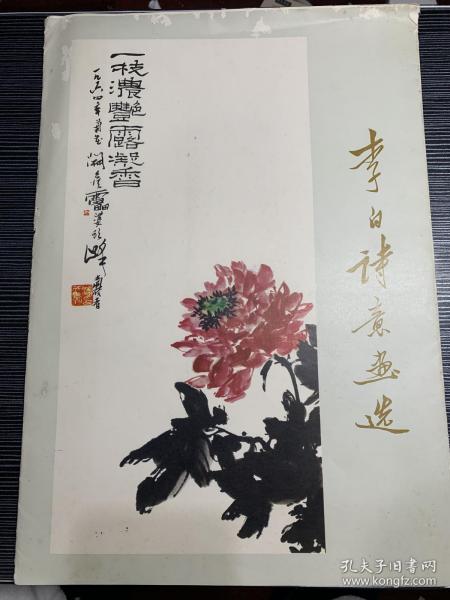 一枝濃艷露凝香
一九六四年
李白詩意畫選
孔夫子旧书网
www.kongfz.com